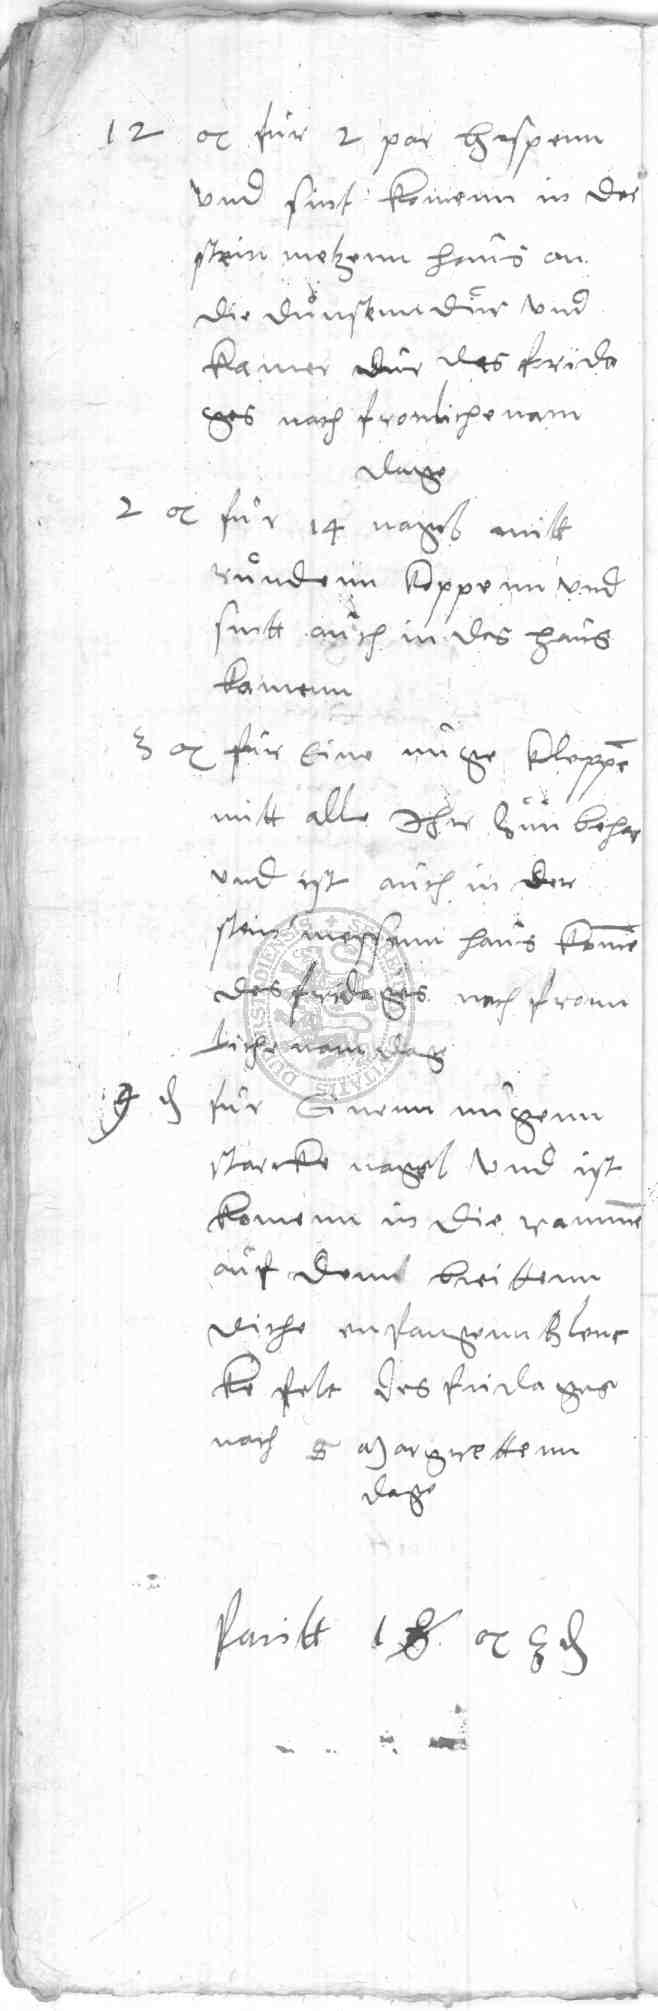 12 gr für 2 par haspenn
vnd sint komenn in der
stein metzenn haus an
die dunstenn dür vnd
kamer dür des frida
ges nach fronlichenam
dage
2 gr für 14 nagel mitt
rundenn koppenn vnd
sintt auch in das haus
kamenn
3 gr für Eine nuge kleppe
mitt alle Ihr zu behor
vnd ist auch in der
stein messenn haus kome
des fridages nach fronn
lichenam dag
9 d für Einenn nugenn
starcke nagel vnd ist
komenn in die ramme
auf demm breittenn
diche
felt des fridages
nach S Margrettenn
dage
1 gr d